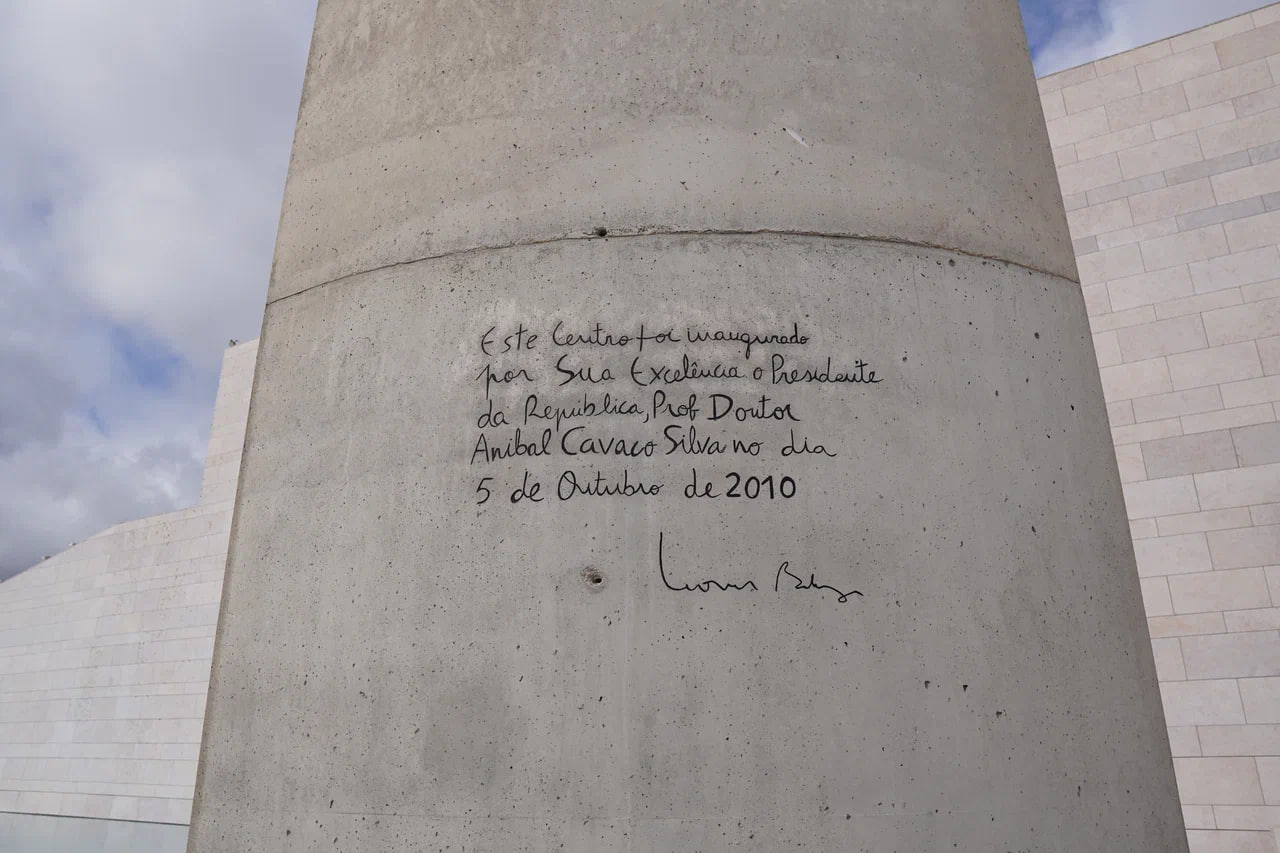 Este Centro foi inaugurado
por Sua Excelência o Presidente
da República, Prof Doutor
Anibal Cavaco Silva no dia
5 de Outubro de 2010